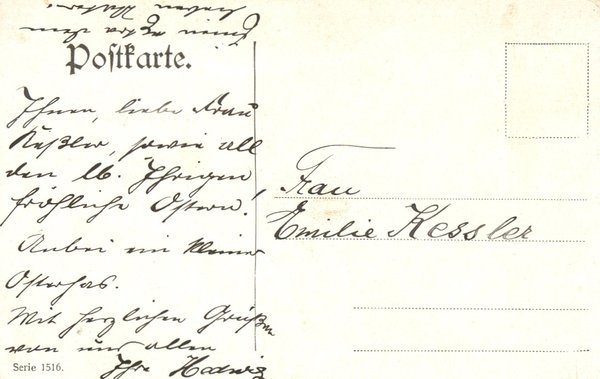 Postkarte.
Ihnen, liebe Frau
Keßler, sowie all
den lb. Ihrigen,
fröhliche Ostern!
Anbei ein kleiner
Osterhas.
Mit herzlichen Grüßen
von uns allen
Ihre Hedwig
Einen Extra dem
lieben Vater.
Frau
Emilie Kessler
Serie 1516.